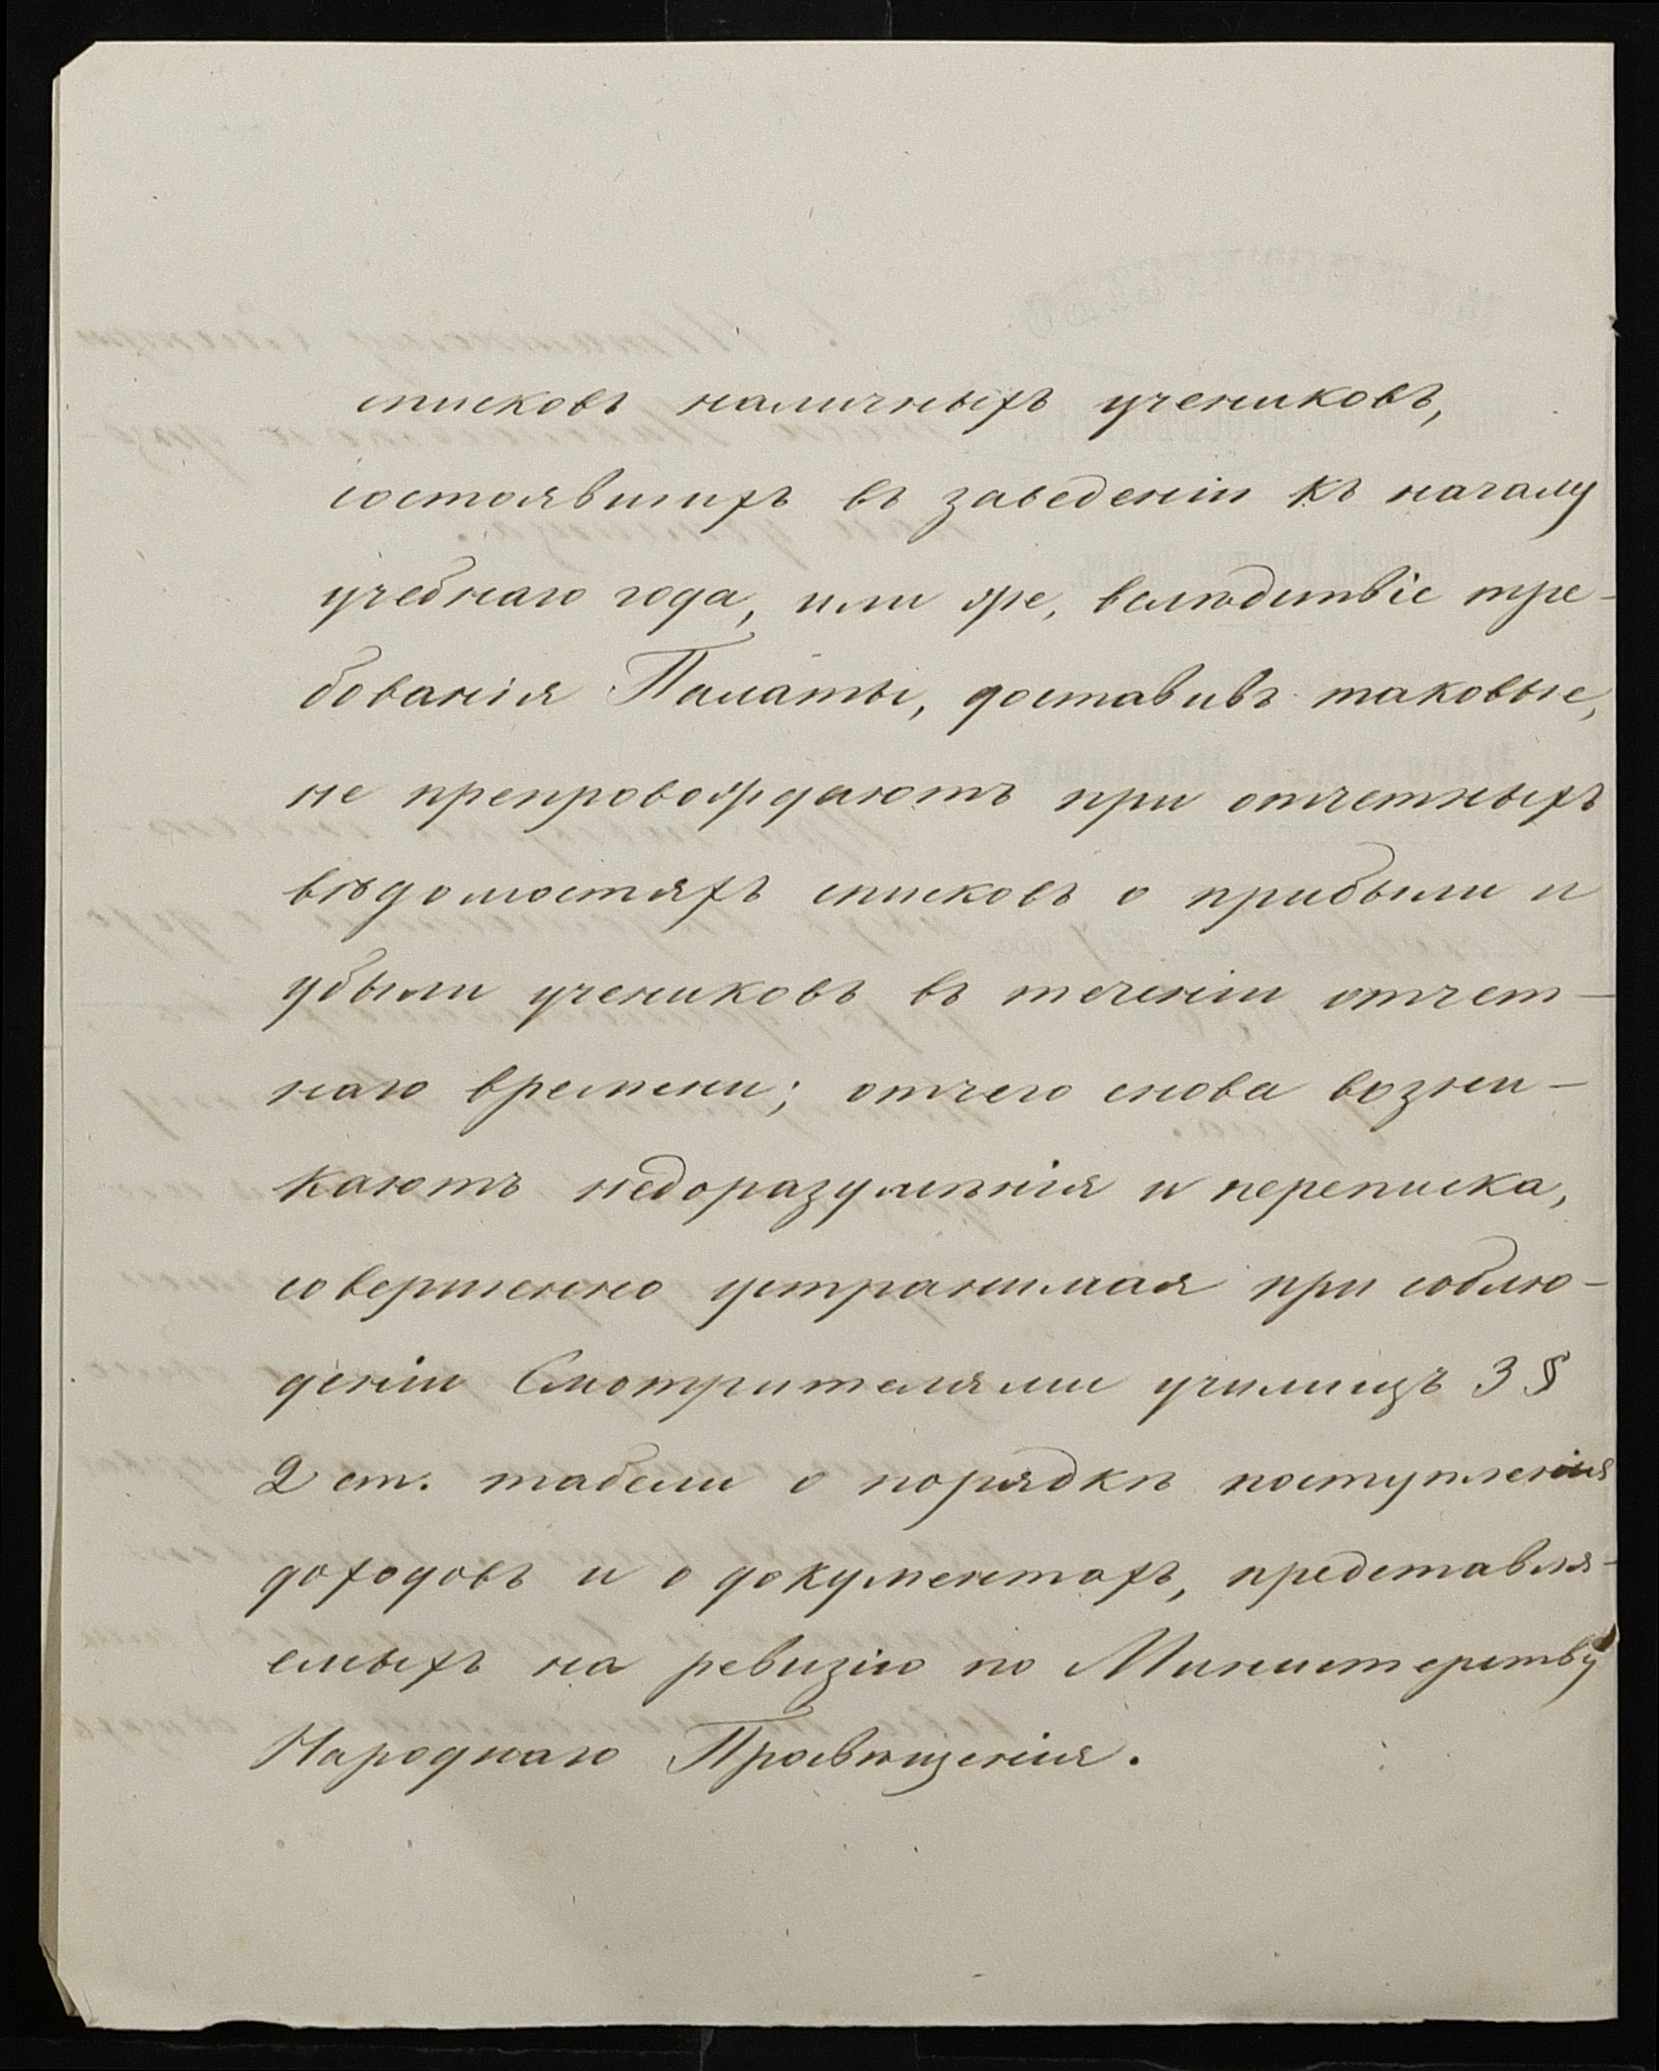 списковъ наличныхъ учениковъ,
состоявшихъ въ заведеніи къ началу
учебнаго года, или же, вслѣдствіе тре-
бованія Палаты, доставивъ таковые,
не препровождаютъ при отчетныхъ
вѣдомостяхъ списковъ о прибыли и
убыли учениковъ въ теченіи отчет-
наго времени; отчего снова возни-
каютъ недоразумѣнія и переписка,
совершенно устранимая при соблю-
деніи Смотрителями училищъ 3 §
2 ст. табели о порядкѣ поступленія
доходовъ и о документахъ, представля-
емыхъ на ревизію по Министерству
Народнаго Просвѣщенія.